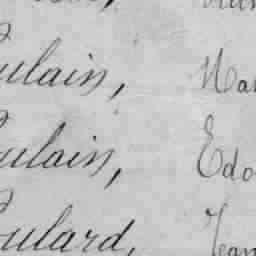 ulain, Ma
ulain, Edo
oulard, Jean